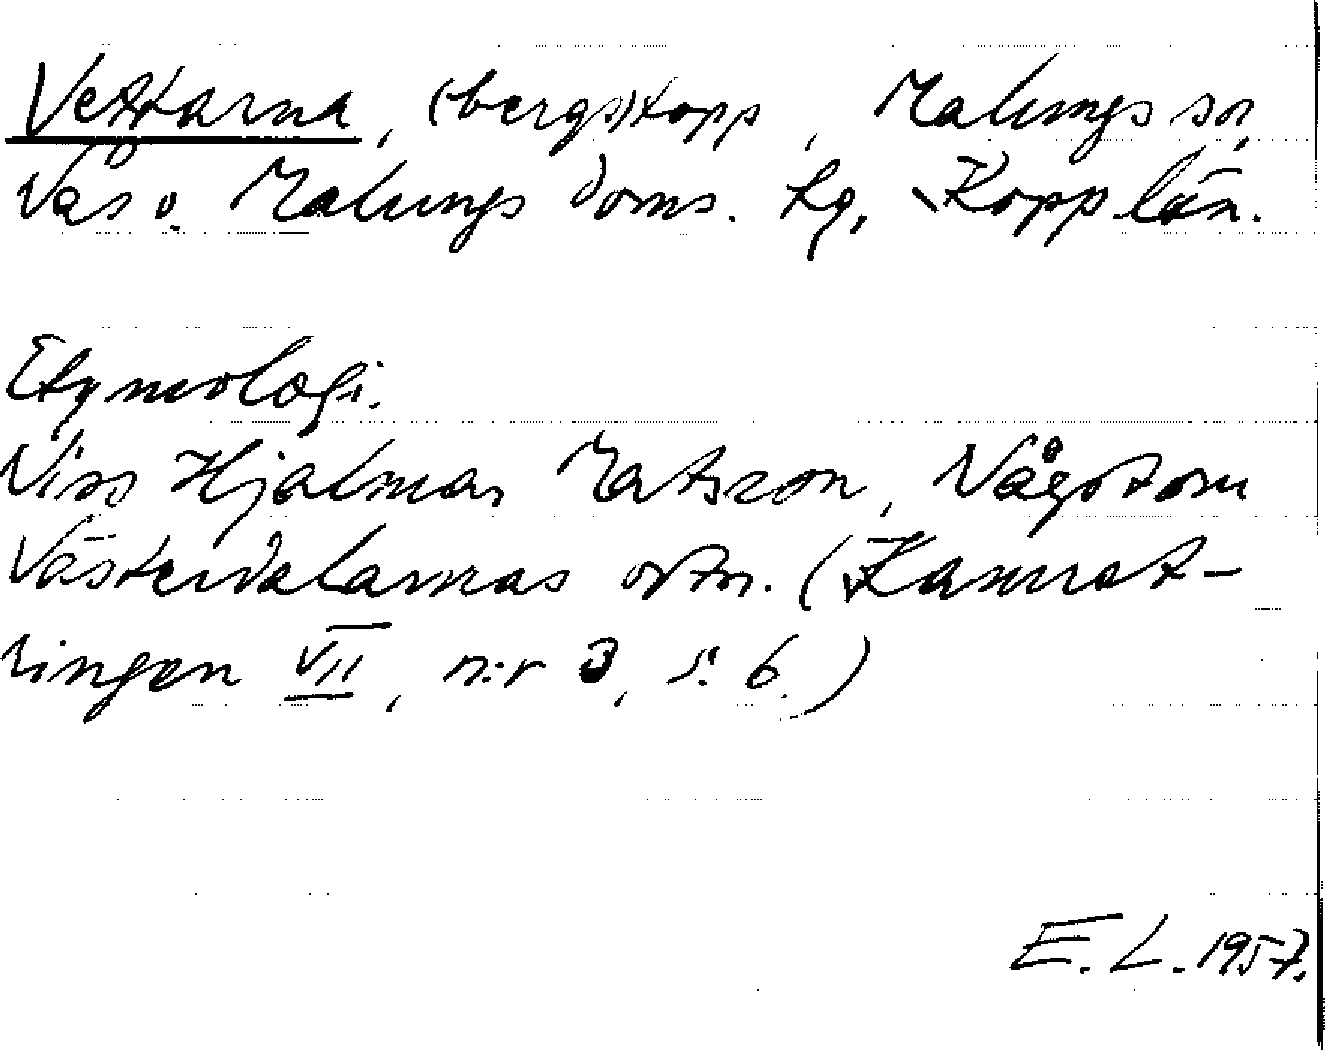 Vettarna, (bergs)topp, Malungs sn,
Nås o. Malungs doms. tg, Kopp län.
Etymologi.
Viss Hjalmar Matson, Något om
Västerdalarnas ortn. (Kamrat-
ringen VII, n:r 3, s. 6.)
E. L. 1957.